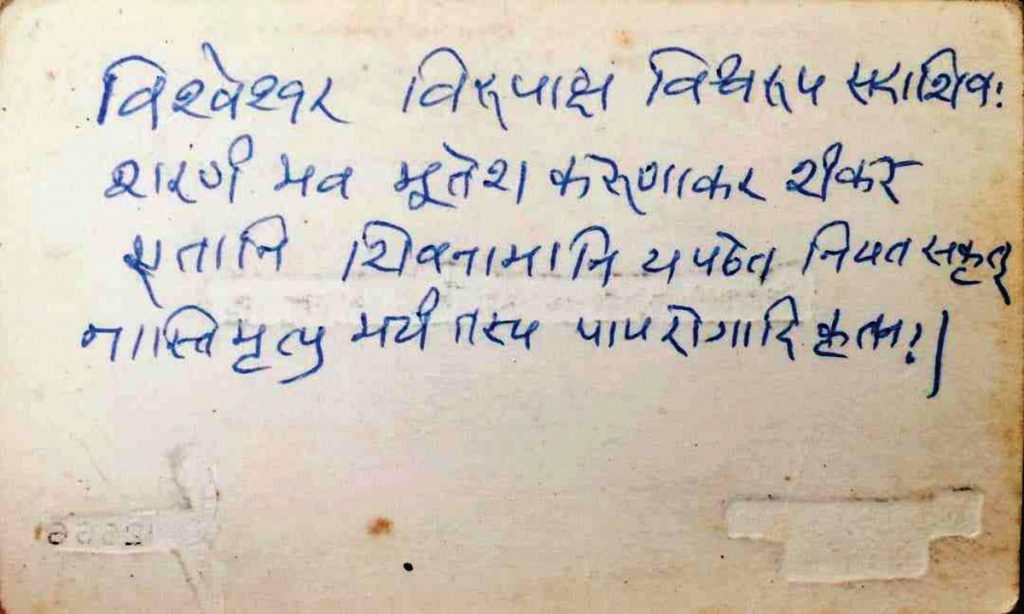 विश्वेश्वर विरूपाक्ष विश्वरूप सदाशिवः
शरणं भव भूतेश करूणाकर शंकर
एतानि शिवनामानि य पठेत नियत सकृत्
नास्ति मृत्यु भयं तस्य पाप रोगादि कृतनः।
12656